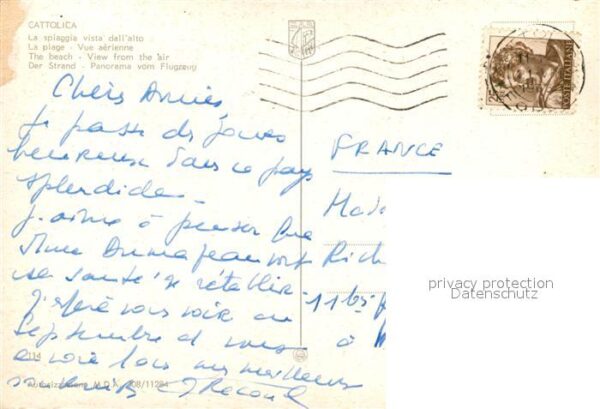 CATTOLICA
La spiaggia vista dall'alto
La plage - Vue aérienne
The beach - View from the air
Der Strand - Panorama vom Flugzeug
Chers Amies
Je passe des jours
heureux dans ce pays
splendide -
J'aime à penser que
Mme
sa santé se rétablir -
J'espère vous voir en
Septembre et vous
envoie tous mes meilleurs
FRANCE
Mada
Rich
11 bis
à
POSTE ITALIANE
114
Autorizzazione M.D.A. 308/11284
privacy protection
Datenschutz